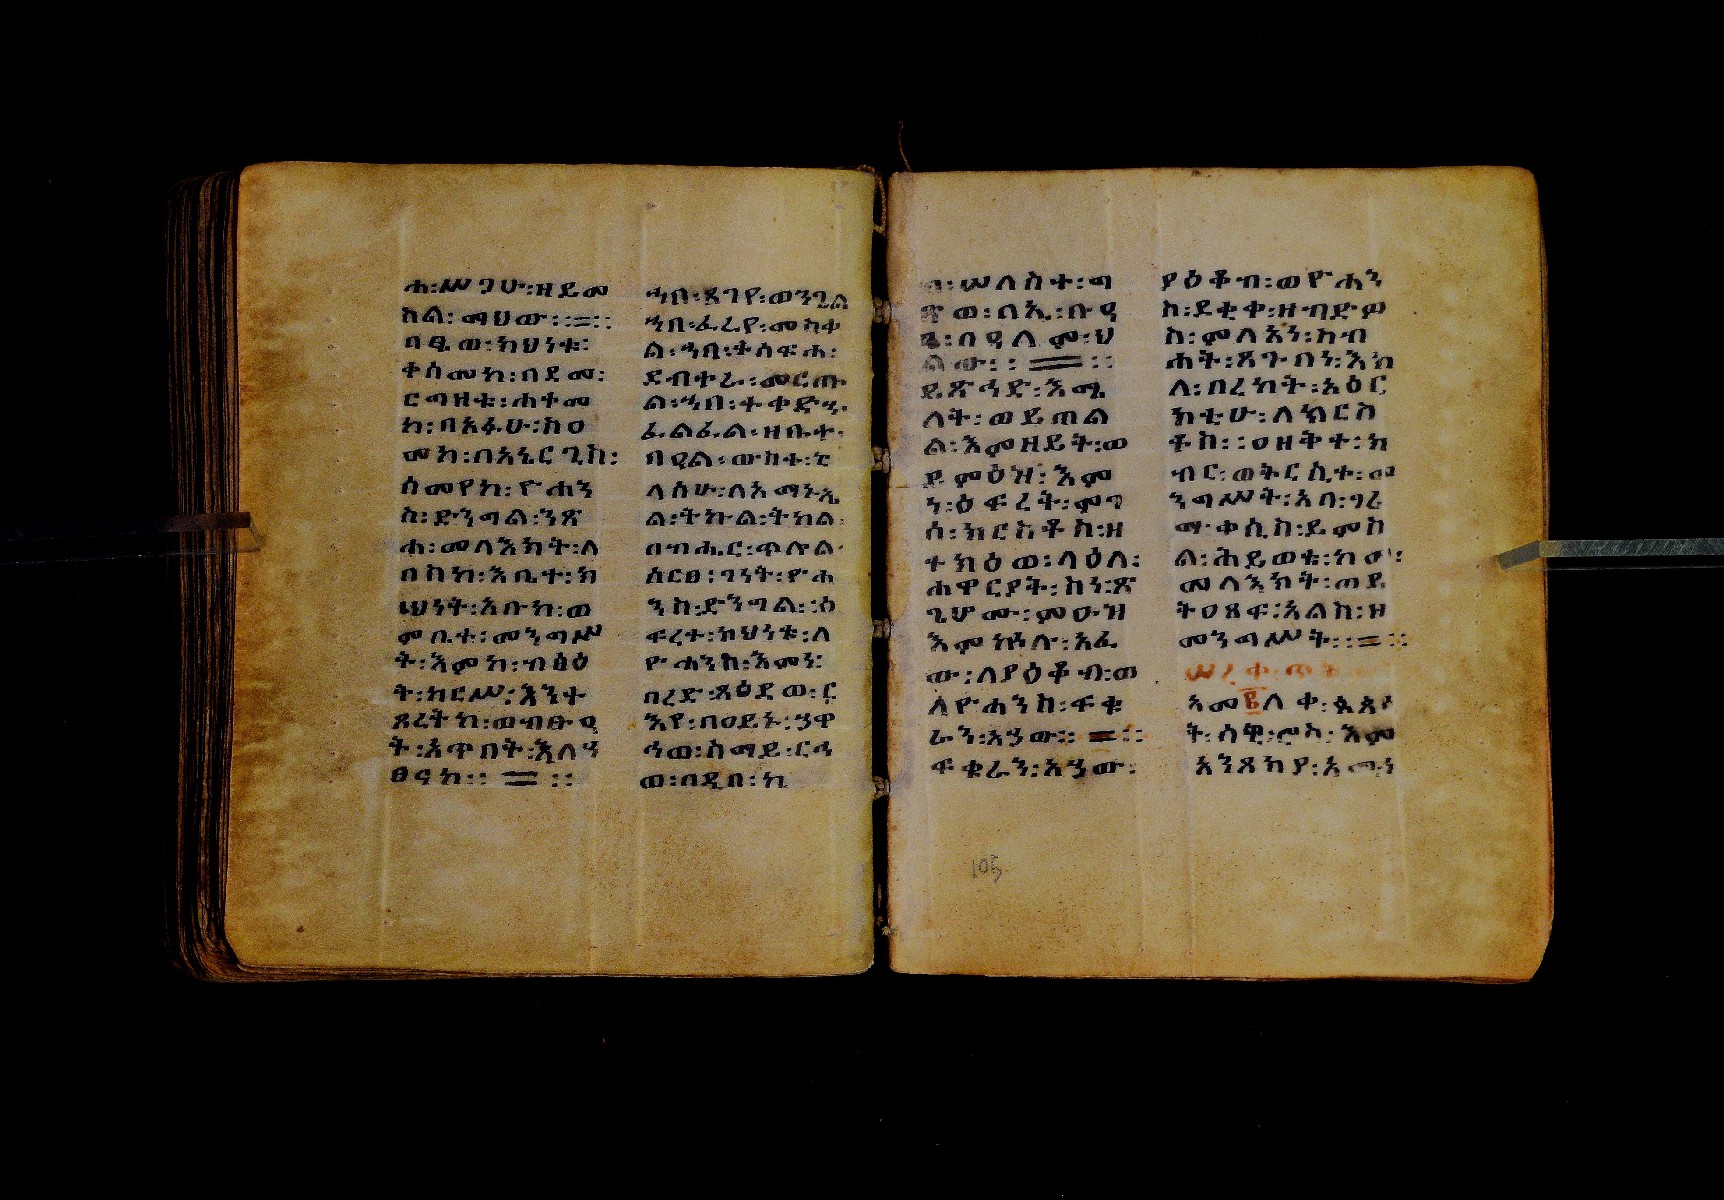 ሐ፡ሥጋሁ፡ዘይመ
ስል፡ማህው፡፡=፡፡
በዒወ፡ክህነቱ፡
ቀሰመከ፡በደመ፡
ርግዘቱ፡ሐተመ
ከ፡በአፉሁ፡ከዐ
መከ፡በእዴርጊስ፡
ሰመየከ፡ዮሐን
ስ፡ድንግል፡ንጽ
ሐ፡መላእክት፡ለ
በስከ፡እቤተ፡ክ
ህነት፡አቡከ፡ወ
ምቤተ፡መንግሥ
ት፡እምከ፡ብፅዕ
ት፡ከርሥ፡እንተ
ጾረትከ፡ወብፁዓ
ት፡አጥበት፡እለሃ
ፀናከ፡፡=፡፡
ኀበ፡ጸገየ፡ወንጌል
ኀበ፡ፈረየ፡መስቀ
ል፡ኀበ፡ቀሰፍሐ፡
ደብተራ፡መርጡ
ል፡ኀበ፡ተቀድሐ
ፈልፈል፡ዘቡተ፡
በዓል፡ውስቱ፡
ላስሁ፡ለአማኑኤ
ል፡ትኩል፡ትክል፡
በብሔር፡ጥሉል፡
ሰርፀ፡ገነት፡ዮሐ
ንስ፡ድንግል፡ዕ
ፍረተ፡ክህነቱ፡ለ
ዮሐንስ፡እምን፡
በረድ፡ጸዕደወ፡ር
እየ፡በዐይኑ፡ኃዋ
ኀወ፡ሰማይ፡ርኅ
ወ፡በዲበ፡ከ
ሠለስተ፡ጣ
ወ፡በኢ፡ቡዳ
በዓለም፡ህ
ልው፡፡=፡፡
ይጽሓድ፡እሜ
ላት፡ወይጠል
ል፡እምዘይት፡ወ
ይምዕዝ፡እም
ን፡ዕፍረት፡ምገ
ሰ፡ክርስቶስ፡ዘ
ተክዕወ፡ላዕለ፡
ሐዋርያት፡ከነ፡ጽ
ጌሆሙ፡ምዑዝ
እምኵሉ፡አፈ
ው፡ለያዕቆብ፡ወ
ለዮሐንስ፡ፍቁ
ራን፡አኃው፡፡=፡፡
ፍቁራን፡አኃው፡
ያዕቆብ፡ወዮሐን
ስ፡ደቂቀ፡ዘብድዎ
ስ፡ምለአን፡ስብ
ሐት፡ጸጉበነ፡እክ
ለ፡በረከት፡አዕር
ክቲሁ፡ለክርስ
ቶስ፡፡ዐዘቅተ፡ክ
ብር፡ወትርሲተ፡መ
ንግሥት፡አባ፡ገሪ
ማ፡ቀሲስ፡ይመስ
ል፡ሕይወቱ፡ከመ፡
መላእክት፡ጠይ
ትዐጸፍ፡አልስ፡ዘ
መንግሥት፡፡=፡፡
ሠረቀ፡
አመ፩ለቀ፡
አንጾኪያ፡እምነ